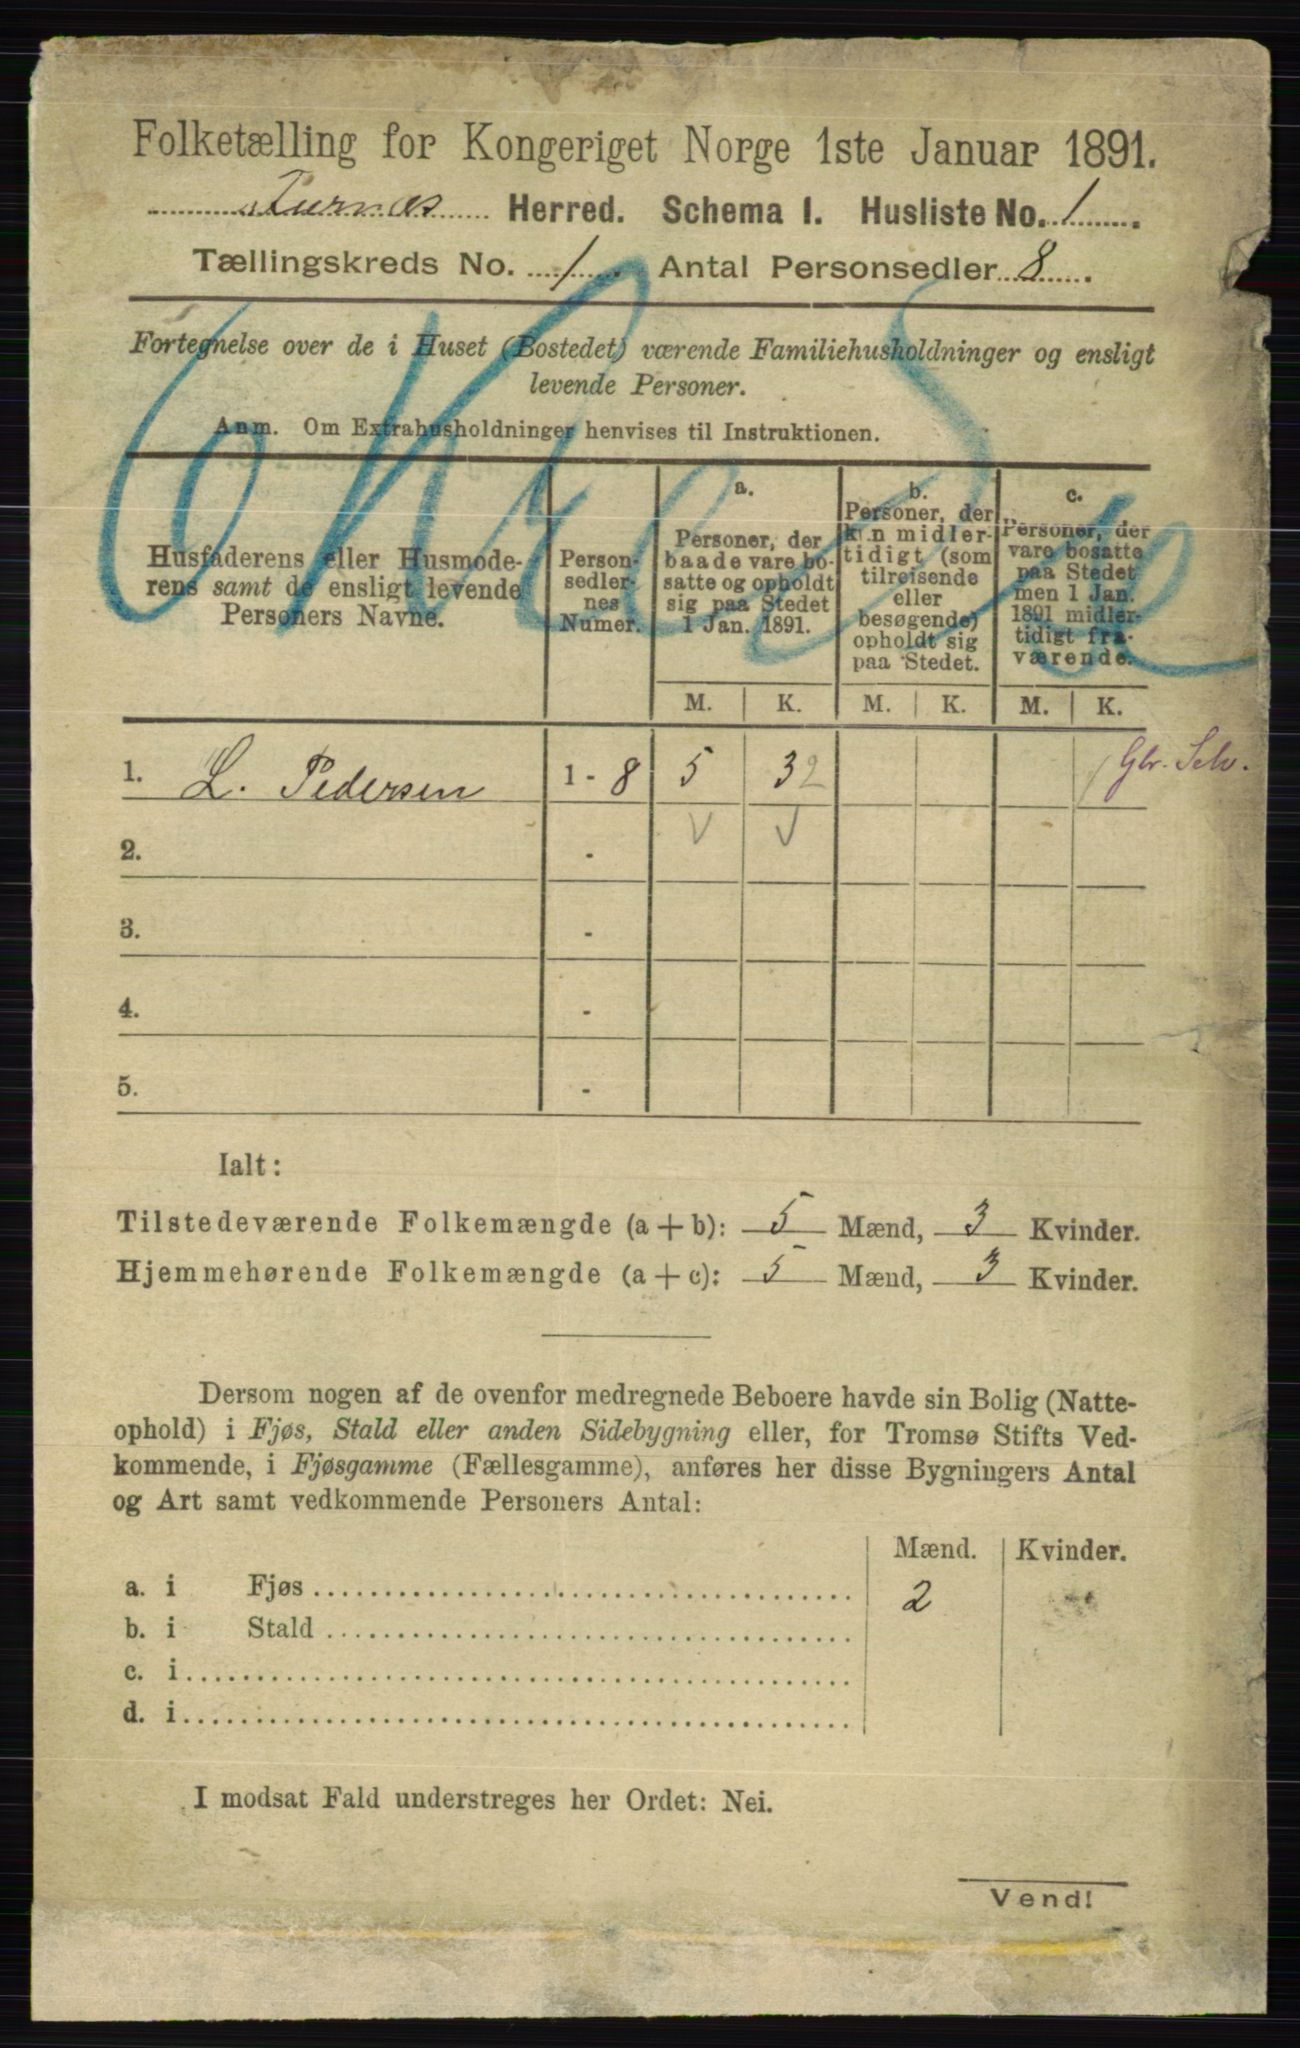 Folketælling for Kongeriget Norge 1ste Januar 1891.
Furnæs Herred. Schema I. Husliste No. 1
Tællingskreds No. 1. Antal Personsedler 8.
Fortegnelse over de i Huset (Bostedet) værende Familiehusholdninger og ensligt
levende Personer.
Anm. Om Extrahusholdninger henvises til Instruktionen.
Husfaderens eller Husmode-
rens samt de ensligt levende
Personers Navne.
Person-
sedler-
nes
Numer.
a.
Personer, der
baade vare bo-
satte og opholdt
sig paa Stedet
1 Jan. 1891.
b.
Personer, der
kun midler-
tidigt (som
tilreisende
eller
besøgende)
opholdt sig
paa Stedet.
c.
Personer, der
vare bosatte
paa Stedet
men 1 Jan.
1891 midler-
tidigt fra-
værende.
M. K. M. K. M. K.
1. L. Pedersen 1 - 8 5 3 2
2. -
3. -
4. -
5. -
Ialt:
Tilstedeværende Folkemængde (a + b): 5 Mænd, 3 Kvinder.
Hjemmehørende Folkemængde (a + c): 5 Mænd, 3 Kvinder.
Dersom nogen af de ovenfor medregnede Beboere havde sin Bolig (Natte-
ophold) i Fjøs, Stald eller anden Sidebygning eller, for Tromsø Stifts Ved-
kommende, i Fjøsgamme (Fællesgamme), anføres her disse Bygningers Antal
og Art samt vedkommende Personers Antal:
Mænd. Kvinder.
a. i Fjøs 2
b. i Stald
c. i
d. i
I modsat Fald understreges her Ordet: Nei.
Vend!